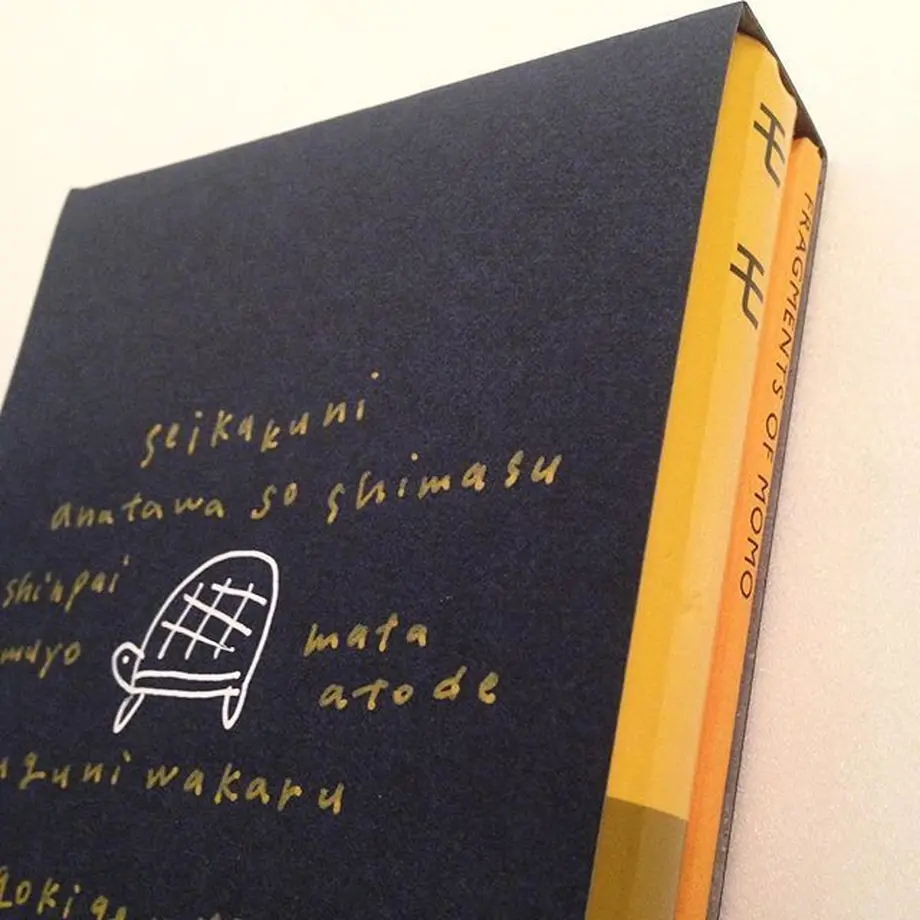 seikakuni
anatawa so shimasu
shinpai
muyo
mata
atode
uguni wakaru
FRAGMENTS OF MOMO